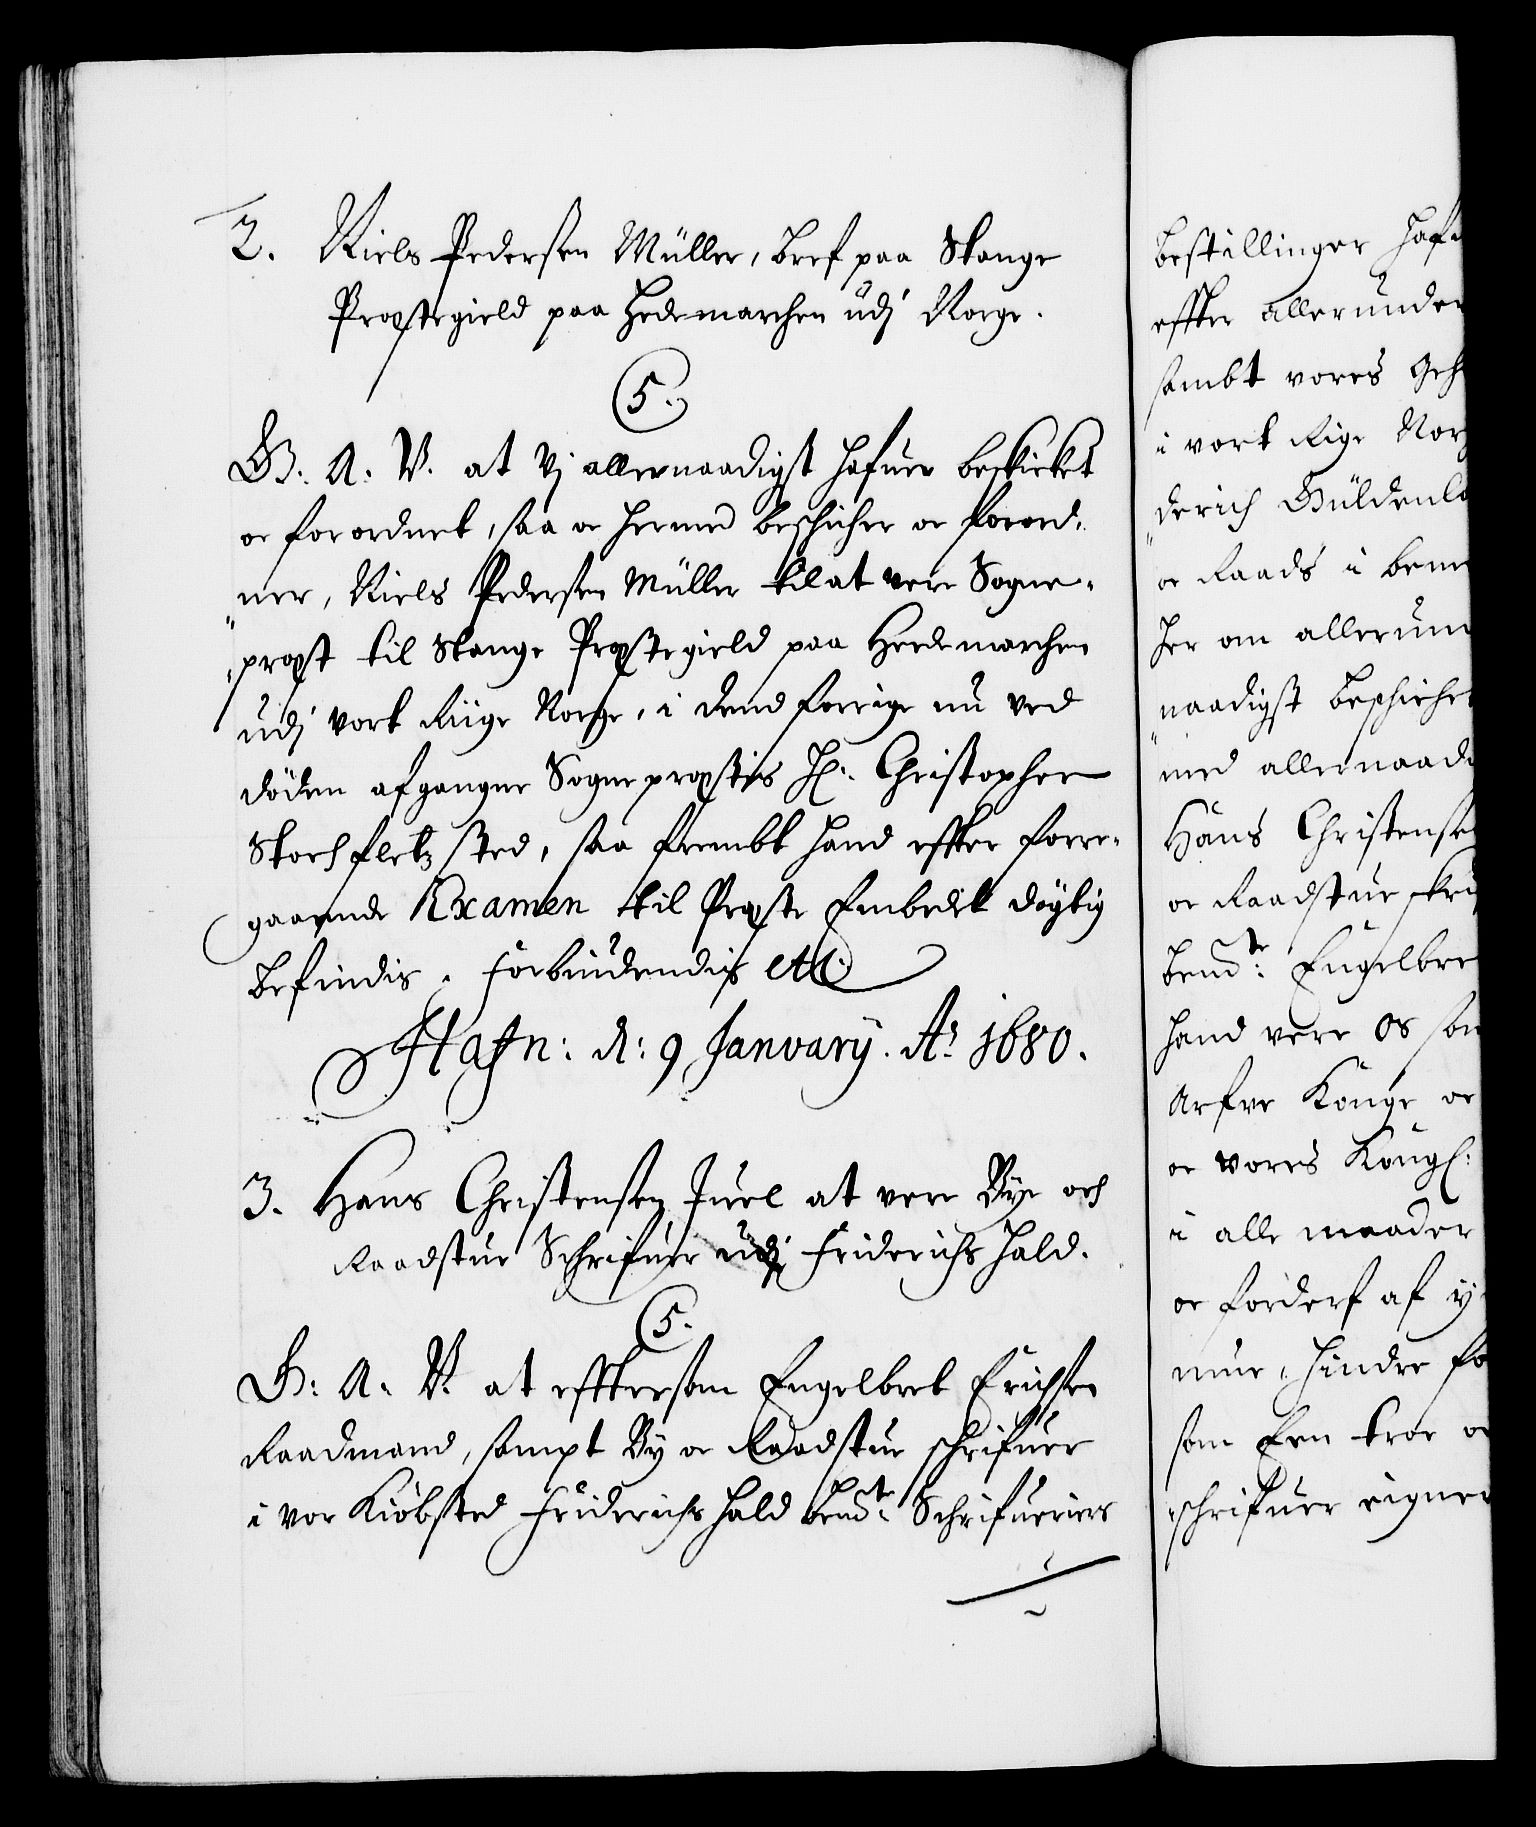 2. Niels Pedersen Müller, bref paa Stange
Præstegield paa Hedemarchen udj Norge.
5.
G. A. V. at Vj allernaadigst hafuer beskicket
oc forordnet, saa oc hermed beschicher oc forord-
ner, Niels Pedersen Müller til at vere Sogne-
præst til Stange Præstegield paa Hedemarchen
udj vort Riige Norge, i dend forrige nu ved
döden afgangne Sognepræstis Hr. Christopher
Storchfletz sted, saa frembt hand effter forre-
gaaende Examen til Præste Embedit döytig
befindis, forbiudendis etc.
Hafn: d: 9 Januarij. Ao 1680.
3. Hans Christensen Juel at vere Bye och
Raadstue Schrifuer udj Friderichs Hald.
5.
G: A. V. at efftersom Engelbret Erichsen
Raadmand, sampt By oc Raadstue schrifuer
i vor Kiöbsted Friderichs Hald bemte Schrifueriers
bestillinger haf
effter allerunder
sambt vores Geh
i vort Rige Nor
derich Güldenlö
oc Raads i bem
her om allerun
naadigst beschicke
med allernaad
Hans Christense
oc Raadstue skri
bemte: Engelbre
hand vere os som
Arfve Konge oc
oc vores Kongl:
i alle maader
oc forderf af y
mue, hindre fo
som Een troe o
schrifuer eigner